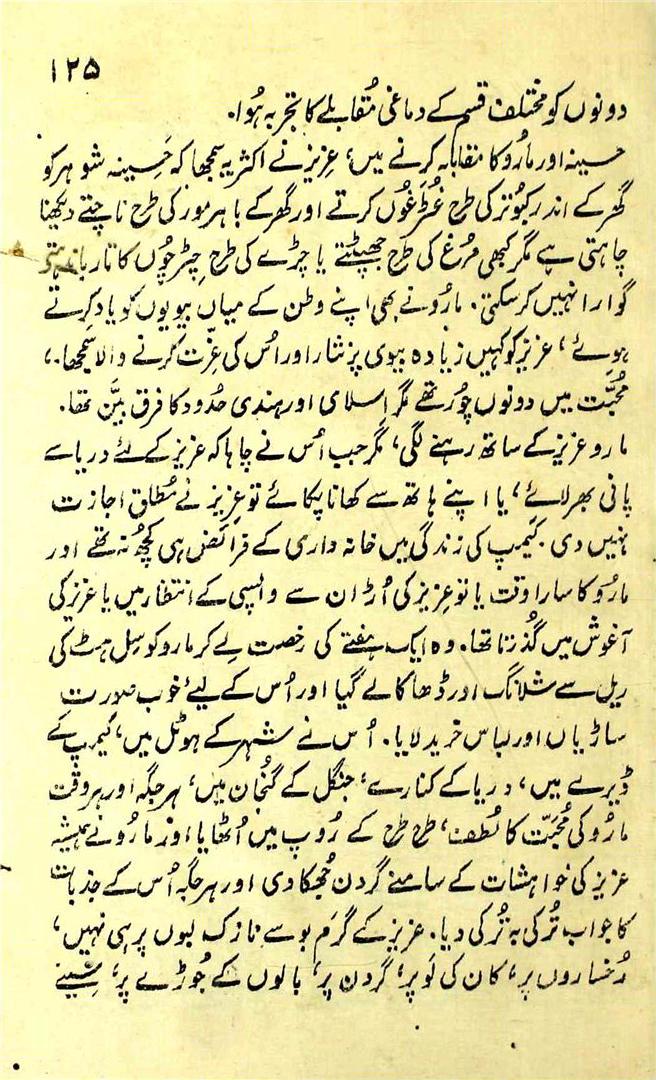 ۱۲۵
دونوں کو مختلف قسم کے دماغی مُقابلے کا تجربہ ہُوا۔
حسینہ اور مارُو کا مقابلہ کرنے میں، عزیز نے اکثر یہ سمجھا کہ حَسِینہ شوہر کو
گھر کے اندر کبُوتر کی طرح غُٹرغُوں کرتے اور گھر کے باہر مور کی طرح ناچتے دیکھنا
چاہتی ہے مگر کبھی مرُغ کی طرح جھپٹنے یا چڑے کی طرح چِڑچُوں کا تار باندھتی
گوارا نہیں کر سکتی۔ مارُو نے بھی اپنے وطن کے میاں بیویوں کو یاد کرتے
ہوئے، عزیز کو کہیں زیادہ بیوی پر نثار اور اُس کی عِزّت کرنے والا سمجھا۔،
مُحبّت میں دونوں چُور تھے مگر اِسلامی اور ہندی حدُود کا فرق بیَّن تھا۔
مارو عزیز کے ساتھ رہنے لگی، مگر جب اُس نے چاہا کہ عزیز کے لئے دریا سے
پانی بھر لائے، یا اپنے ہاتھ سے کھانا پکائے تو عزیز نے مُطلق اجازت
نہیں دی۔ کیمپ کی زندگی میں خانہ داری کے فرائض ہی کچھ نہ تھے اور
مارُو کا سارا وقت یا تو عزیز کی اُڑان سے واپسی کے انتظار میں یا عزیز کی
آغوش میں گذرتا تھا۔ وہ ایک ہفتے کی رخصت لے کر مارو کو سِل ہٹ کی
ریل سے شلانگ اور ڈھاکا لے گیا اور اُس کے لیئے خوب صورت
ساڑیاں اور لباس خرید لایا۔ اُس نے شہر کے ہوٹل میں، کیمپ کے
ڈیرے میں، دریا کے کنارے، جنگل کے گُنجان میں، ہر جگہ اور ہر وقت
مارُو کی مُحبّت کا لُطف، طرح طرح کے رُوپ میں اُٹھایا اور مارُو نے ہمیشہ
عزیز کی خواہشات کے سامنے گردن جُھکا دی اور ہر جگہ اُس کے جذبات
کا جواب تُرکی بہ تُرکی دیا۔ عزیز کے گرم بوسے نازک لبوں پر ہی نہیں،
رُخساروں پر، کان کی لَو پر، گردن پر، بالوں کے جُوڑے پر، سِینے